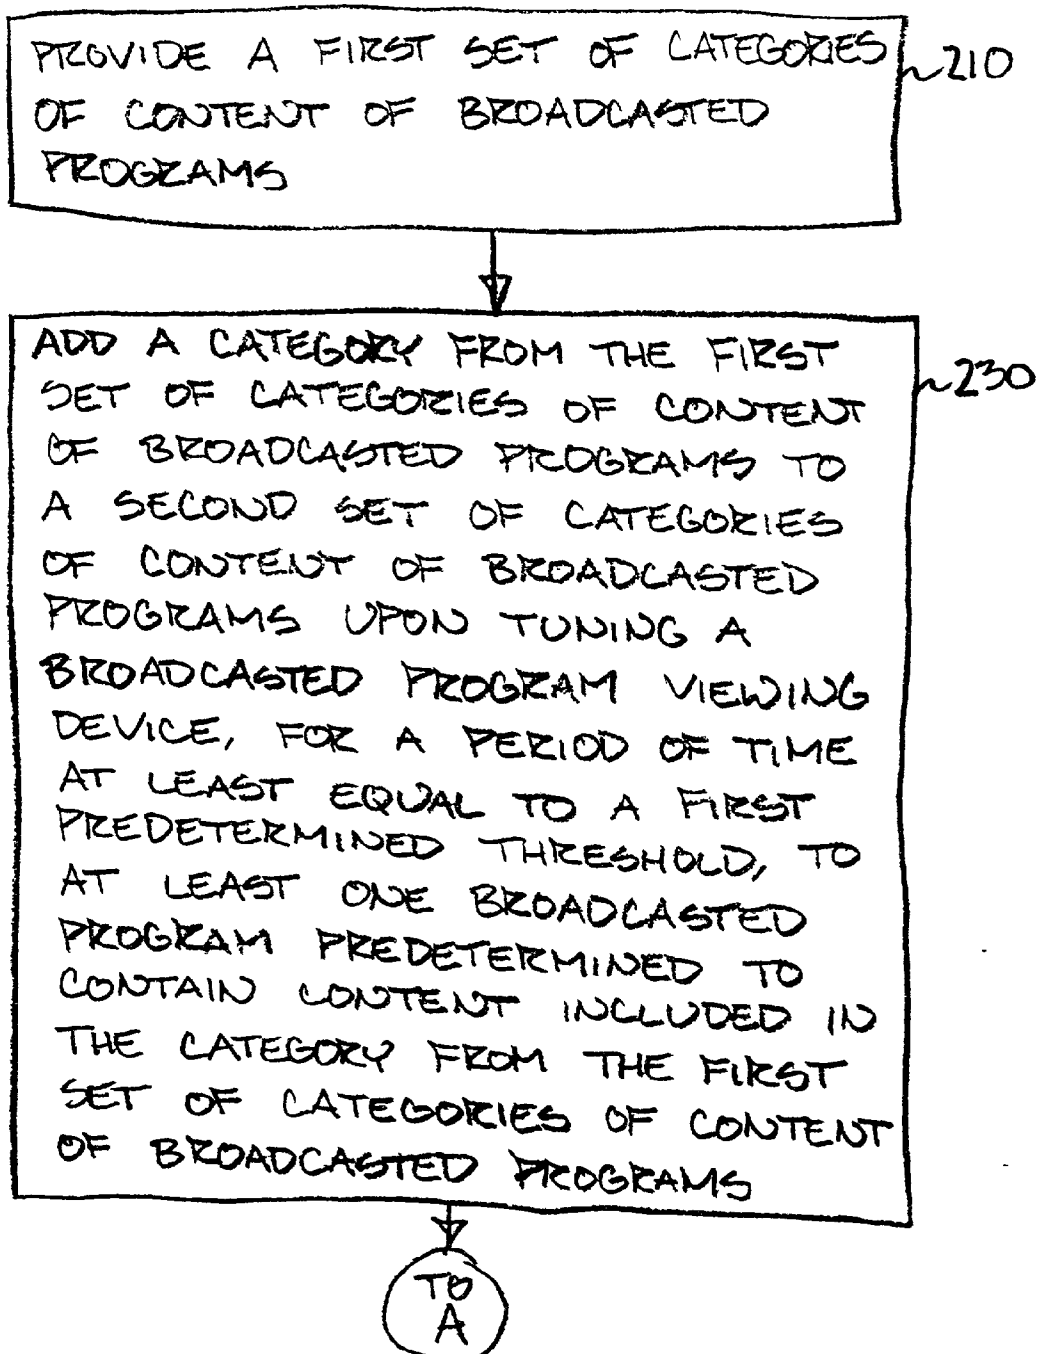 PROVIDE A FIRST SET OF CATEGORIES
OF CONTENT OF BROADCASTED
PROGRAMS
210
ADD A CATEGORY FROM THE FIRST
SET OF CATEGORIES OF CONTENT
OF BROADCASTED PROGRAMS TO
A SECOND SET OF CATEGORIES
OF CONTENT OF BROADCASTED
PROGRAMS UPON TUNING A
BROADCASTED PROGRAM VIEWING
DEVICE, FOR A PERIOD OF TIME
AT LEAST EQUAL TO A FIRST
PREDETERMINED THRESHOLD, TO
AT LEAST ONE BROADCASTED
PROGRAM PREDETERMINED TO
CONTAIN CONTENT INCLUDED IN
THE CATEGORY FROM THE FIRST
SET OF CATEGORIES OF CONTENT
OF BROADCASTED PROGRAMS
230
TO
A